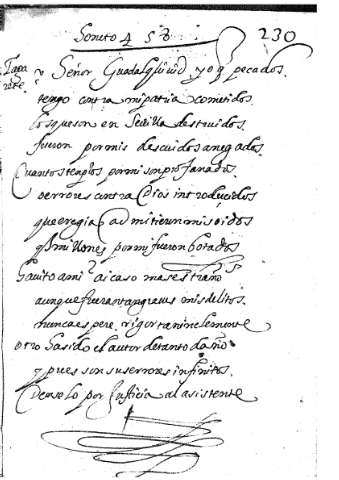 Soneto 4 58 230
Señor Guadalquiuir yo q pecados
tengo contra mi patria cometidos
los que son en Seuilla destruidos
fueron por mis descuidos anegados
Quantos templos por mi son profanados
o errores contra Dios introducidos
que eregias admitieron mis oidos
q millones por mi fueron botados
aunque fueran tan graues mis delitos
nunca espere rigor tan inclemente
otro a sido el autor de tanto daño
y pues son sus errores infinitos
por Justicia al asistente